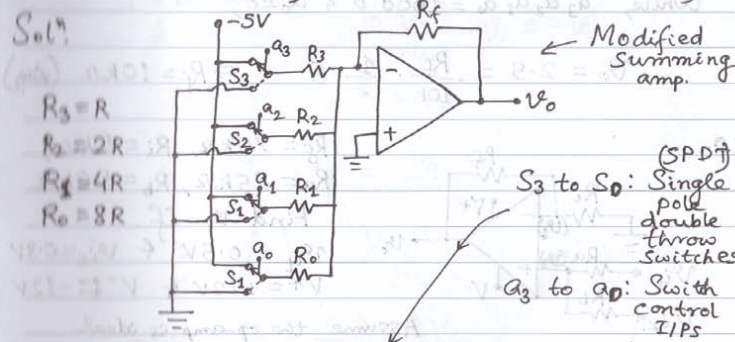 Solⁿ.
-5V
Rf
a3
R3
S3
-
+
Vo
Modified
Summing
amp.
R3 = R
R2 = 2R
R1 = 4R
R0 = 8R
a2
R2
S2
a1
R1
S1
a0
R0
S1
(SPDT)
S3 to S0: Single
pole
double
throw
switches
a3 to a0: Swith
control
I/Ps